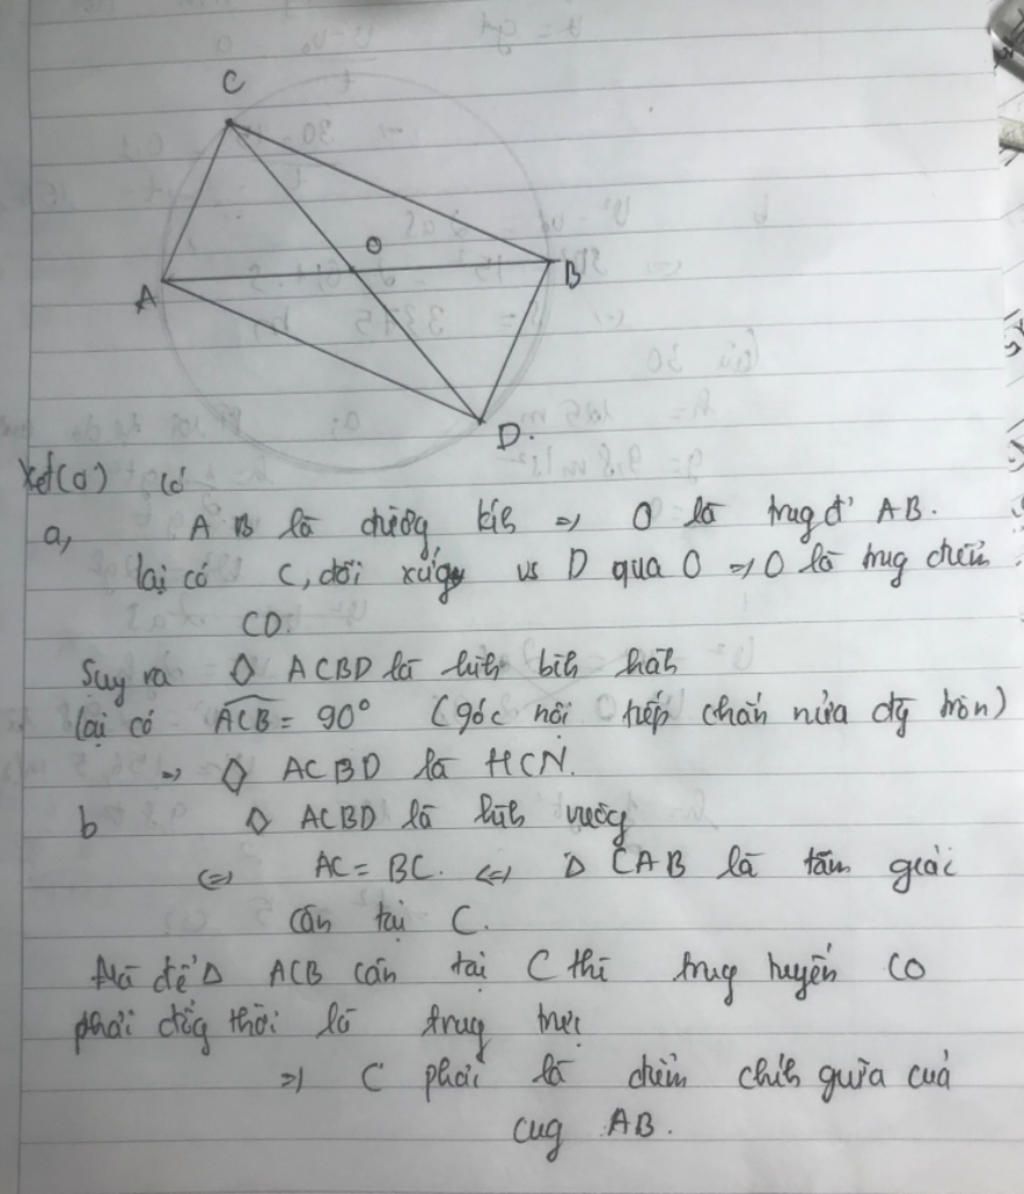 C
O
A
B
D.
Xét (O) có
a, AB là đường kíh => O là trug đ' AB.
lại có C, đối xứg vs D qua O => O là trug điểm
CD.
Suy ra ◇ ACBD là hìh bìh hàh
lại có ACB = 90° (góc nội tiếp chắn nửa đg tròn)
=> ◇ ACBD là HCN.
b ◇ ACBD là hìh vuôg
<=> AC = BC. <=> Δ CAB là tâm giác
cân tại C.
Mà để Δ ACB cân tại C thì trug tuyến CO
phải đồg thời là trug trực
=> C phải là điểm chíh giữa của
cug AB.